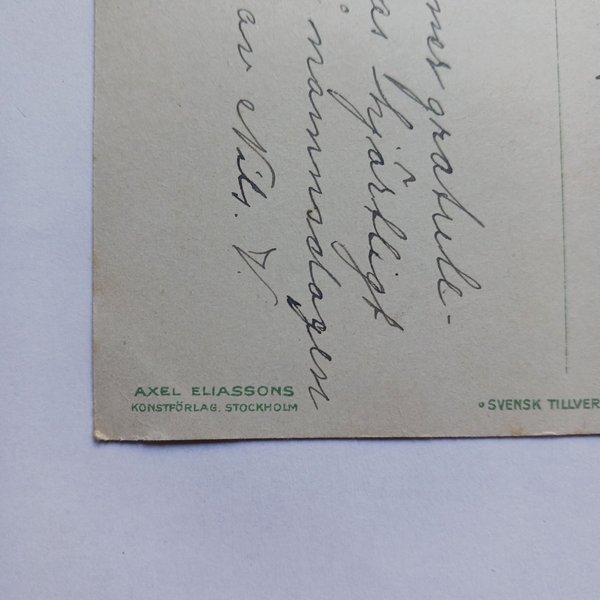 gratule-
hjärtligt
namnsdagen
av Nils.
AXEL ELIASSONS
KONSTFÖRLAG. STOCKHOLM
SVENSK TILLVER